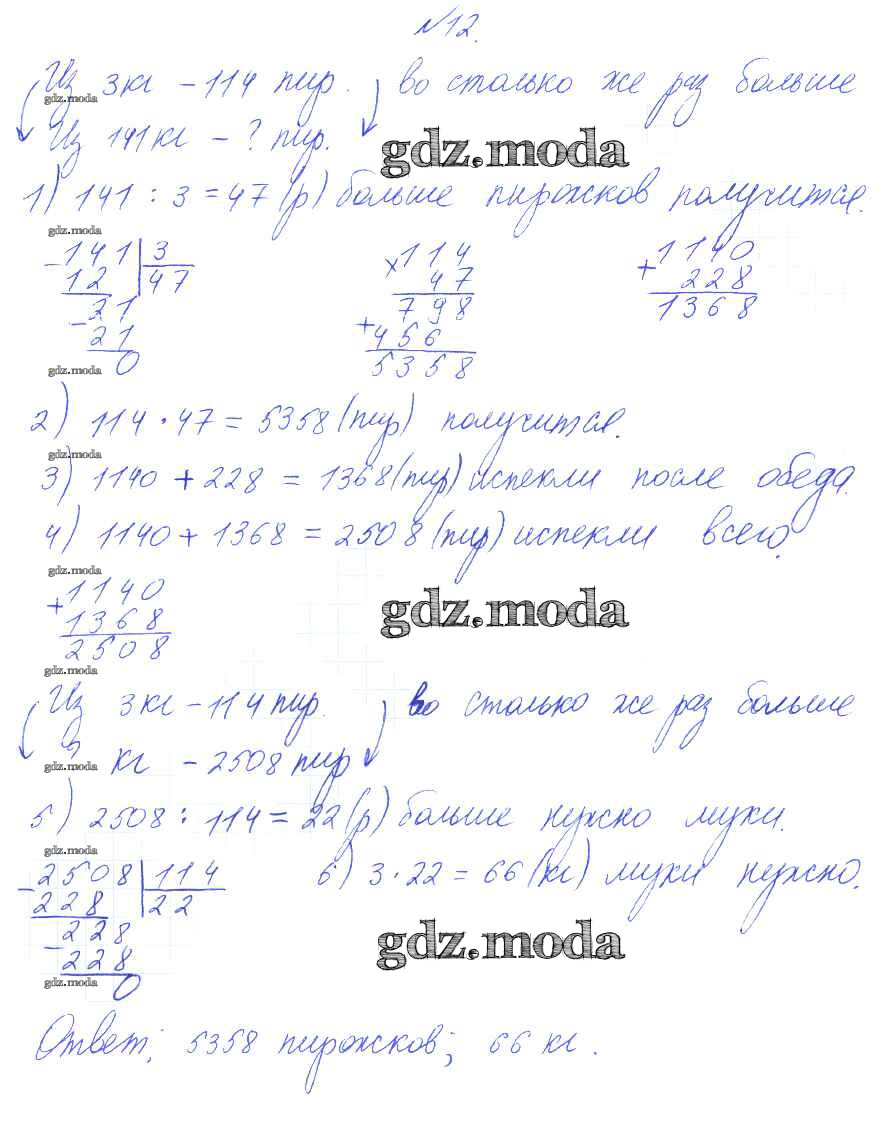 №12.
Из 3кг – 114 пир. во столько же раз больше
gdz.moda
Из 141кг – ? пир.
gdz.moda
1) 141 : 3 = 47 (р) больше пирожков получится.
gdz.moda
– 141 | 3
12 | 47
– 21
21
0
gdz.moda
× 114
47
798
+ 456
5358
+ 1140
228
1368
2) 114 · 47 = 5358 (пир) получится.
gdz.moda
3) 1140 + 228 = 1368 (пир) испекли после обеда.
4) 1140 + 1368 = 2508 (пир) испекли всего.
gdz.moda
+ 1140
1368
2508
gdz.moda
gdz.moda
Из 3кг – 114 пир. во столько же раз больше
? кг – 2508 пир
gdz.moda
5) 2508 : 114 = 22 (р) больше нужно муки.
gdz.moda
– 2508 | 114
228 | 22
– 228
228
0
gdz.moda
6) 3 · 22 = 66 (кг) муки нужно.
gdz.moda
Ответ; 5358 пирожков; 66 кг.